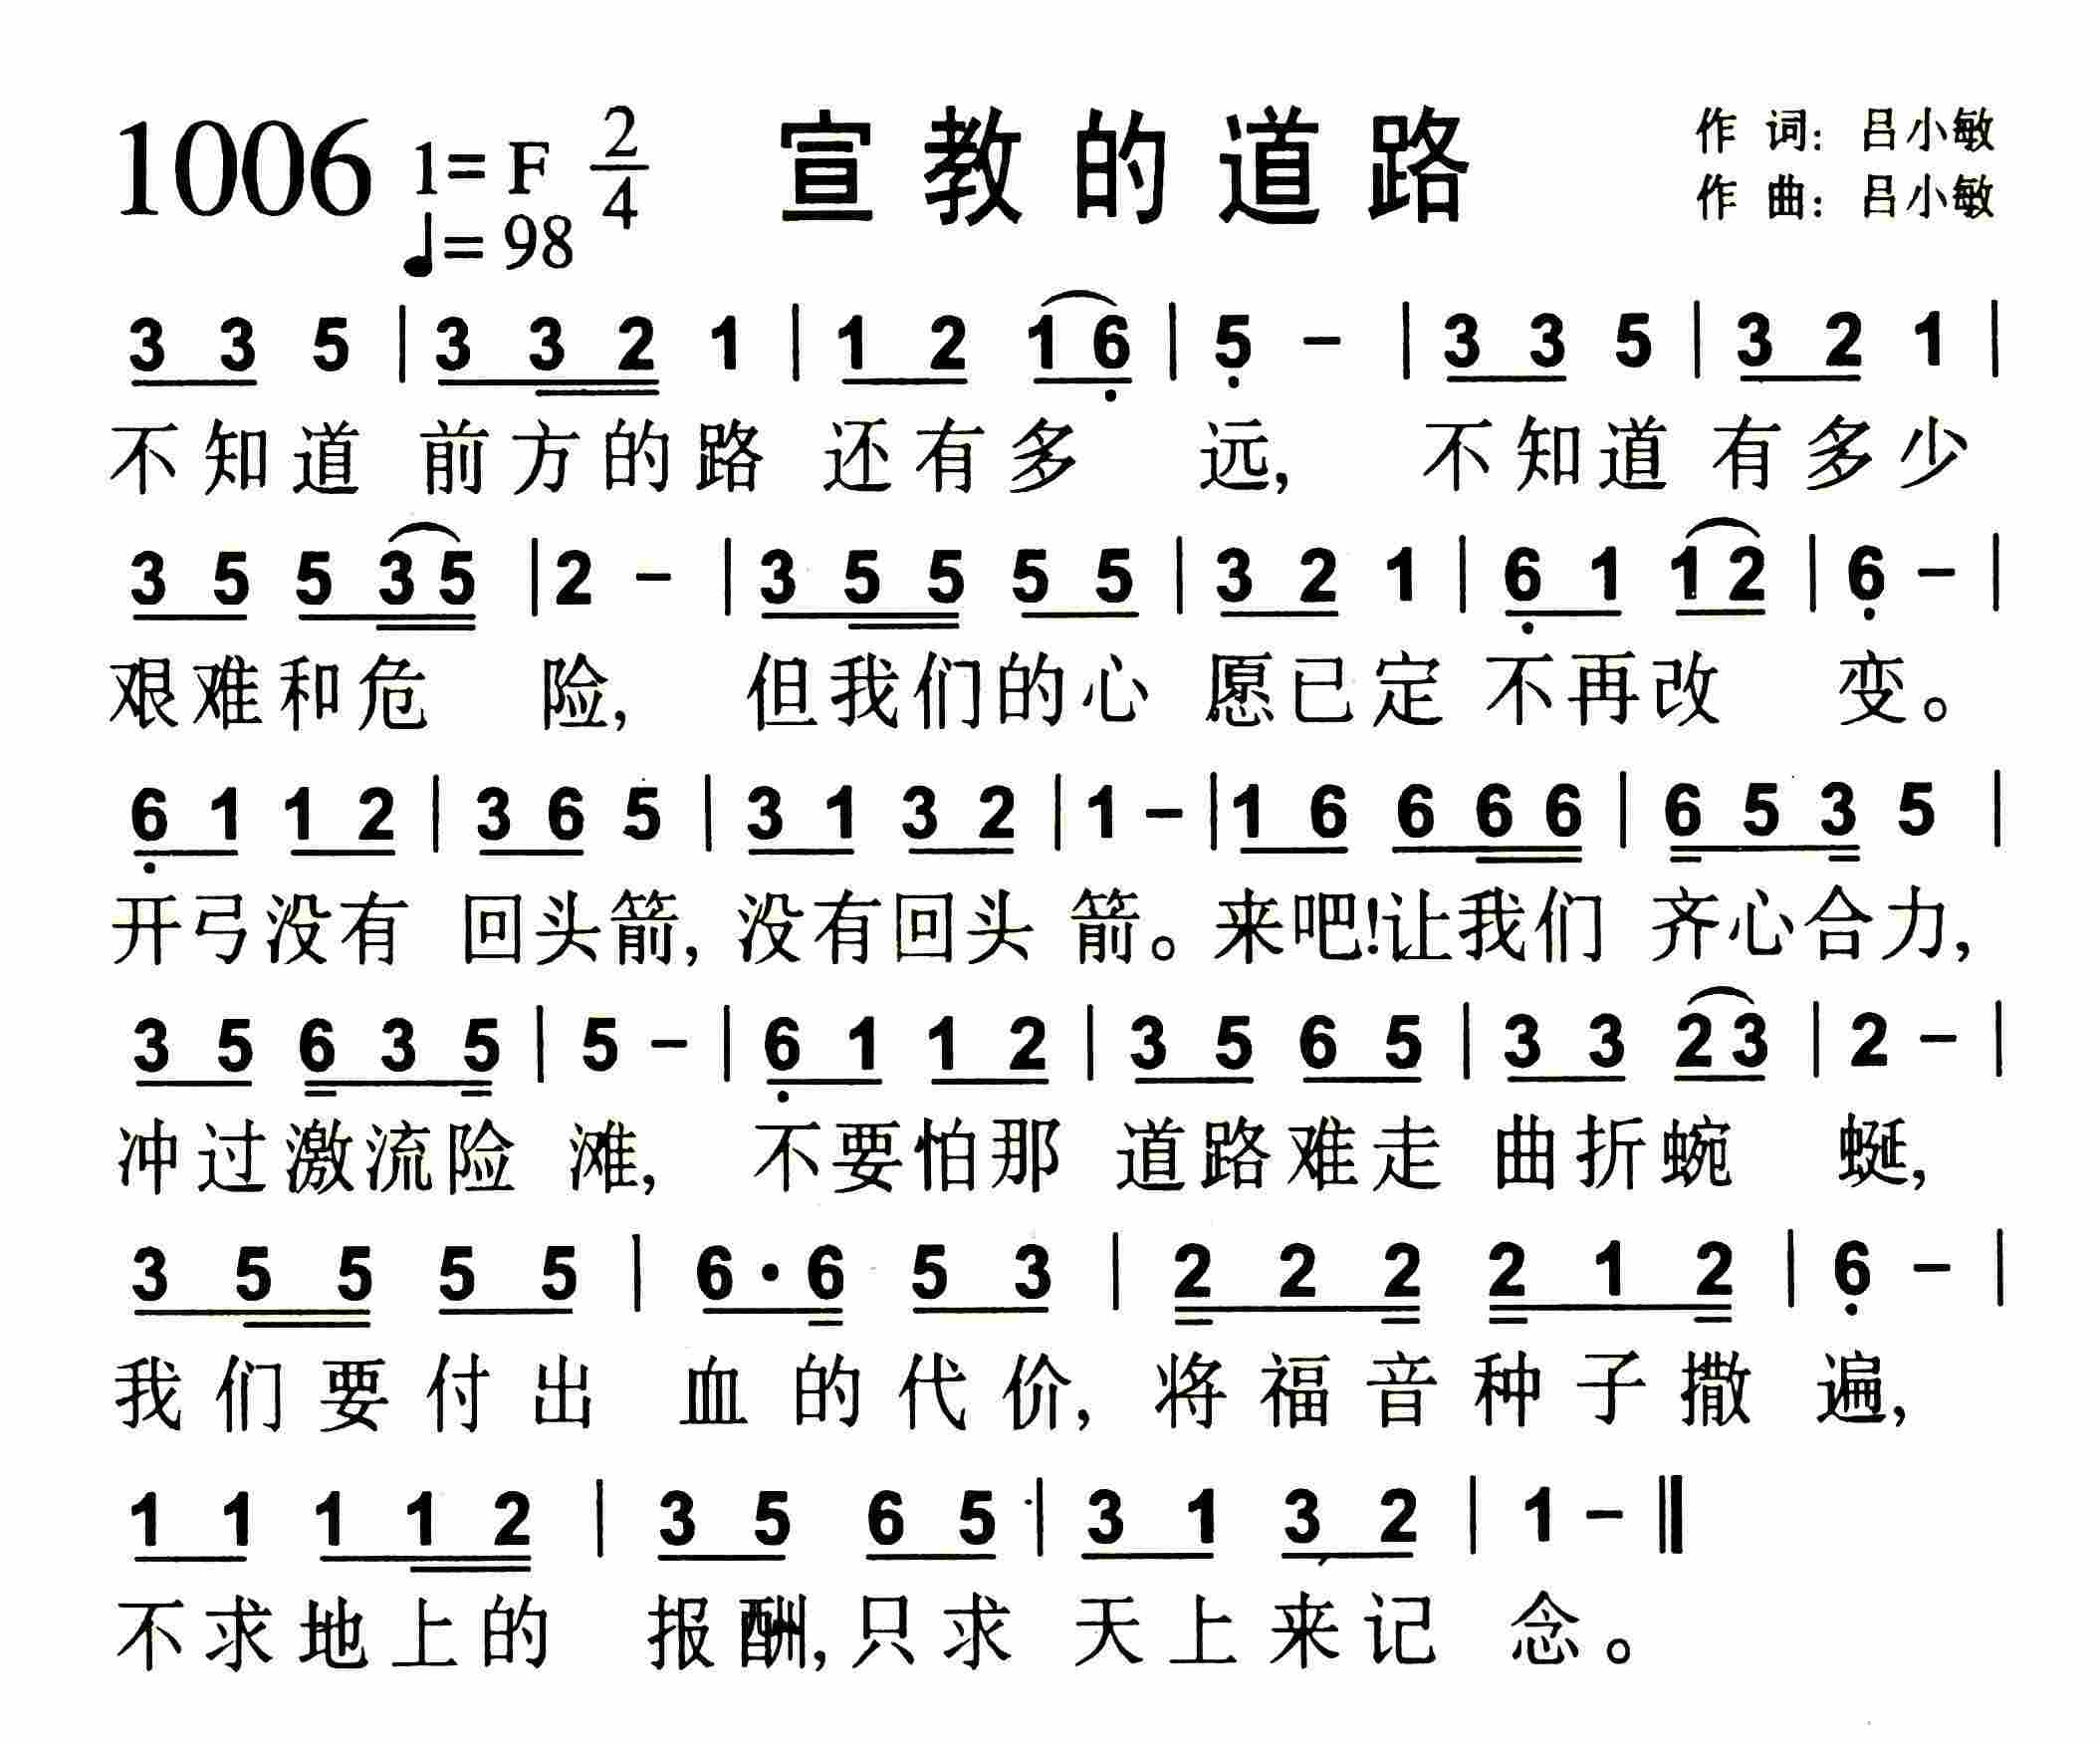 1006 1=F 2/4 宣教的道路 作词：吕小敏
♩=98 作曲：吕小敏
3 3 5 | 3 3 2 1 | 1 2 1 6 | 5 - | 3 3 5 | 3 2 1 |
不知道 前方的路 还有多 远, 不知道 有多少
3 5 5 3 5 | 2 - | 3 5 5 5 5 | 3 2 1 | 6 1 1 2 | 6 - |
艰难和危 险, 但我们的心 愿已定 不再改 变。
6 1 1 2 | 3 6 5 | 3 1 3 2 | 1 - | 1 6 6 6 6 | 6 5 3 5 |
开弓没有 回头箭, 没有回头 箭。来吧!让我们 齐心合力,
3 5 6 3 5 | 5 - | 6 1 1 2 | 3 5 6 5 | 3 3 2 3 | 2 - |
冲过激流险 滩, 不要怕那 道路难走 曲折蜿 蜒,
3 5 5 5 5 | 6 · 6 5 3 | 2 2 2 2 1 2 | 6 - |
我们要付出 血的代价, 将福音种子撒 遍,
1 1 1 1 2 | 3 5 6 5 | 3 1 3 2 | 1 - ‖
不求地上的 报酬,只求 天上来记 念。